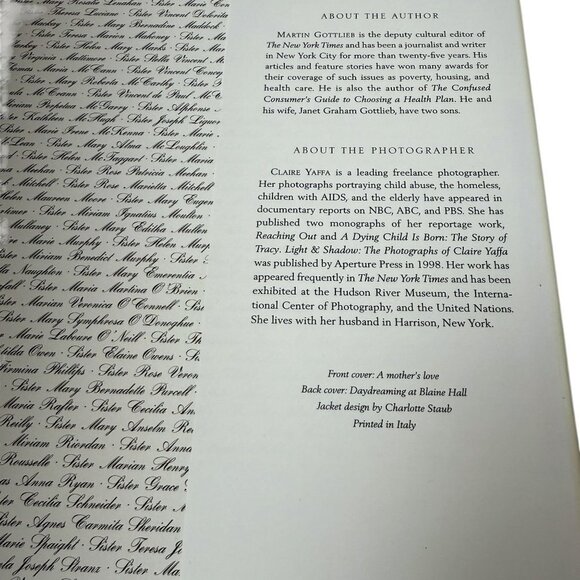 Sister Mary Rosalie Lenahan · Sister
Theresa Luciano · Sister Vincent Dolorita
Mackey · Sister Mary Bernadine Madden
Sister Teresa Marian Mahoney · Sister Mar
arkey · Sister Helen Mary Marks · Sister
y Virginia Mattimore · Sister Stella Vincent
rances Marie Mc Cann · Sister Vincent Concep
Sister Mary Robert Mc Carthy · Sister
la Mc Crann · Sister Vincent de Paul Mc
iriam Perpetua Mc Garry · Sister Alphonse
ster Kathleen Mc Hugh · Sister Joseph Liguor
er Marie Irene Mc Kenna · Sister Marie
Lean · Sister Mary Alma Mc Laughlin ·
Sister Helen Mc Taggart · Sister Maria
na Meehan · Sister Rose Patricia Meehan ·
h Mitchell · Sister Rose Marietta Mitchell
Helen Maureen Moore · Sister Mary Eugen
ortimer · Sister Miriam Ignatius Moulton ·
Mullaney · Sister Mary Editha Mullen
Marie Murphy · Sister Helen Mur
riam Benedict Murphy · Sister Miriam
Naughton · Sister Mary Emerentia
Sister Maria Martina O' Brien ·
Marian Veronica O' Connell · Sister
Mary Symphrosa O' Donoghue ·
Marie Laboure O' Neill · Sister Th
tilda Owen · Sister Elaine Owens · Sister
Firmina Phillips · Sister Rose Veron
Sister Mary Bernadette Purcell
Maria Rafter · Sister Cecilia An
Reilly · Sister Mary Anselm Re
Miriam Riordan · Sister Anna
Rousselle · Sister Marian Henry
as Anna Ryan · Sister Grace
Cecilia Schneider · Sister Mar
ister Agnes Carmita Sheridan
Marie Spaight · Sister Teresa Jo
la Joseph Stranz · Sister Ma
ABOUT THE AUTHOR
MARTIN GOTTLIEB is the deputy cultural editor of
The New York Times and has been a journalist and writer
in New York City for more than twenty-five years. His
articles and feature stories have won many awards for
their coverage of such issues as poverty, housing, and
health care. He is also the author of The Confused
Consumer's Guide to Choosing a Health Plan. He and
his wife, Janet Graham Gottlieb, have two sons.
ABOUT THE PHOTOGRAPHER
CLAIRE YAFFA is a leading freelance photographer.
Her photographs portraying child abuse, the homeless,
children with AIDS, and the elderly have appeared in
documentary reports on NBC, ABC, and PBS. She has
published two monographs of her reportage work,
Reaching Out and A Dying Child Is Born: The Story of
Tracy. Light & Shadow: The Photographs of Claire Yaffa
was published by Aperture Press in 1998. Her work has
appeared frequently in The New York Times and has been
exhibited at the Hudson River Museum, the Interna-
tional Center of Photography, and the United Nations.
She lives with her husband in Harrison, New York.
Front cover: A mother's love
Back cover: Daydreaming at Blaine Hall
Jacket design by Charlotte Staub
Printed in Italy